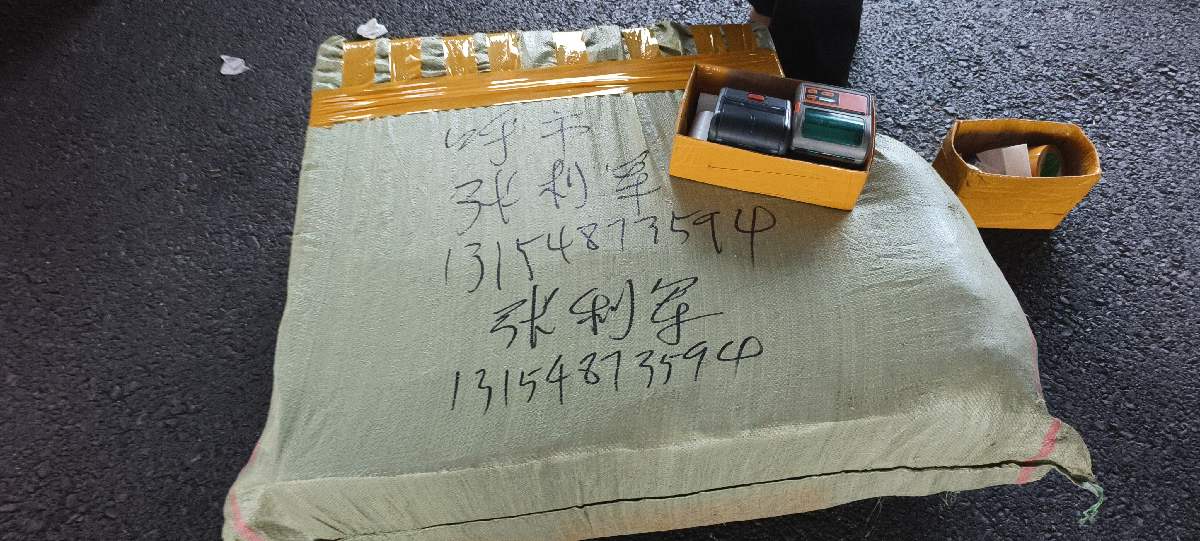 呼市
张利军
13154873594
张利军
13154873594